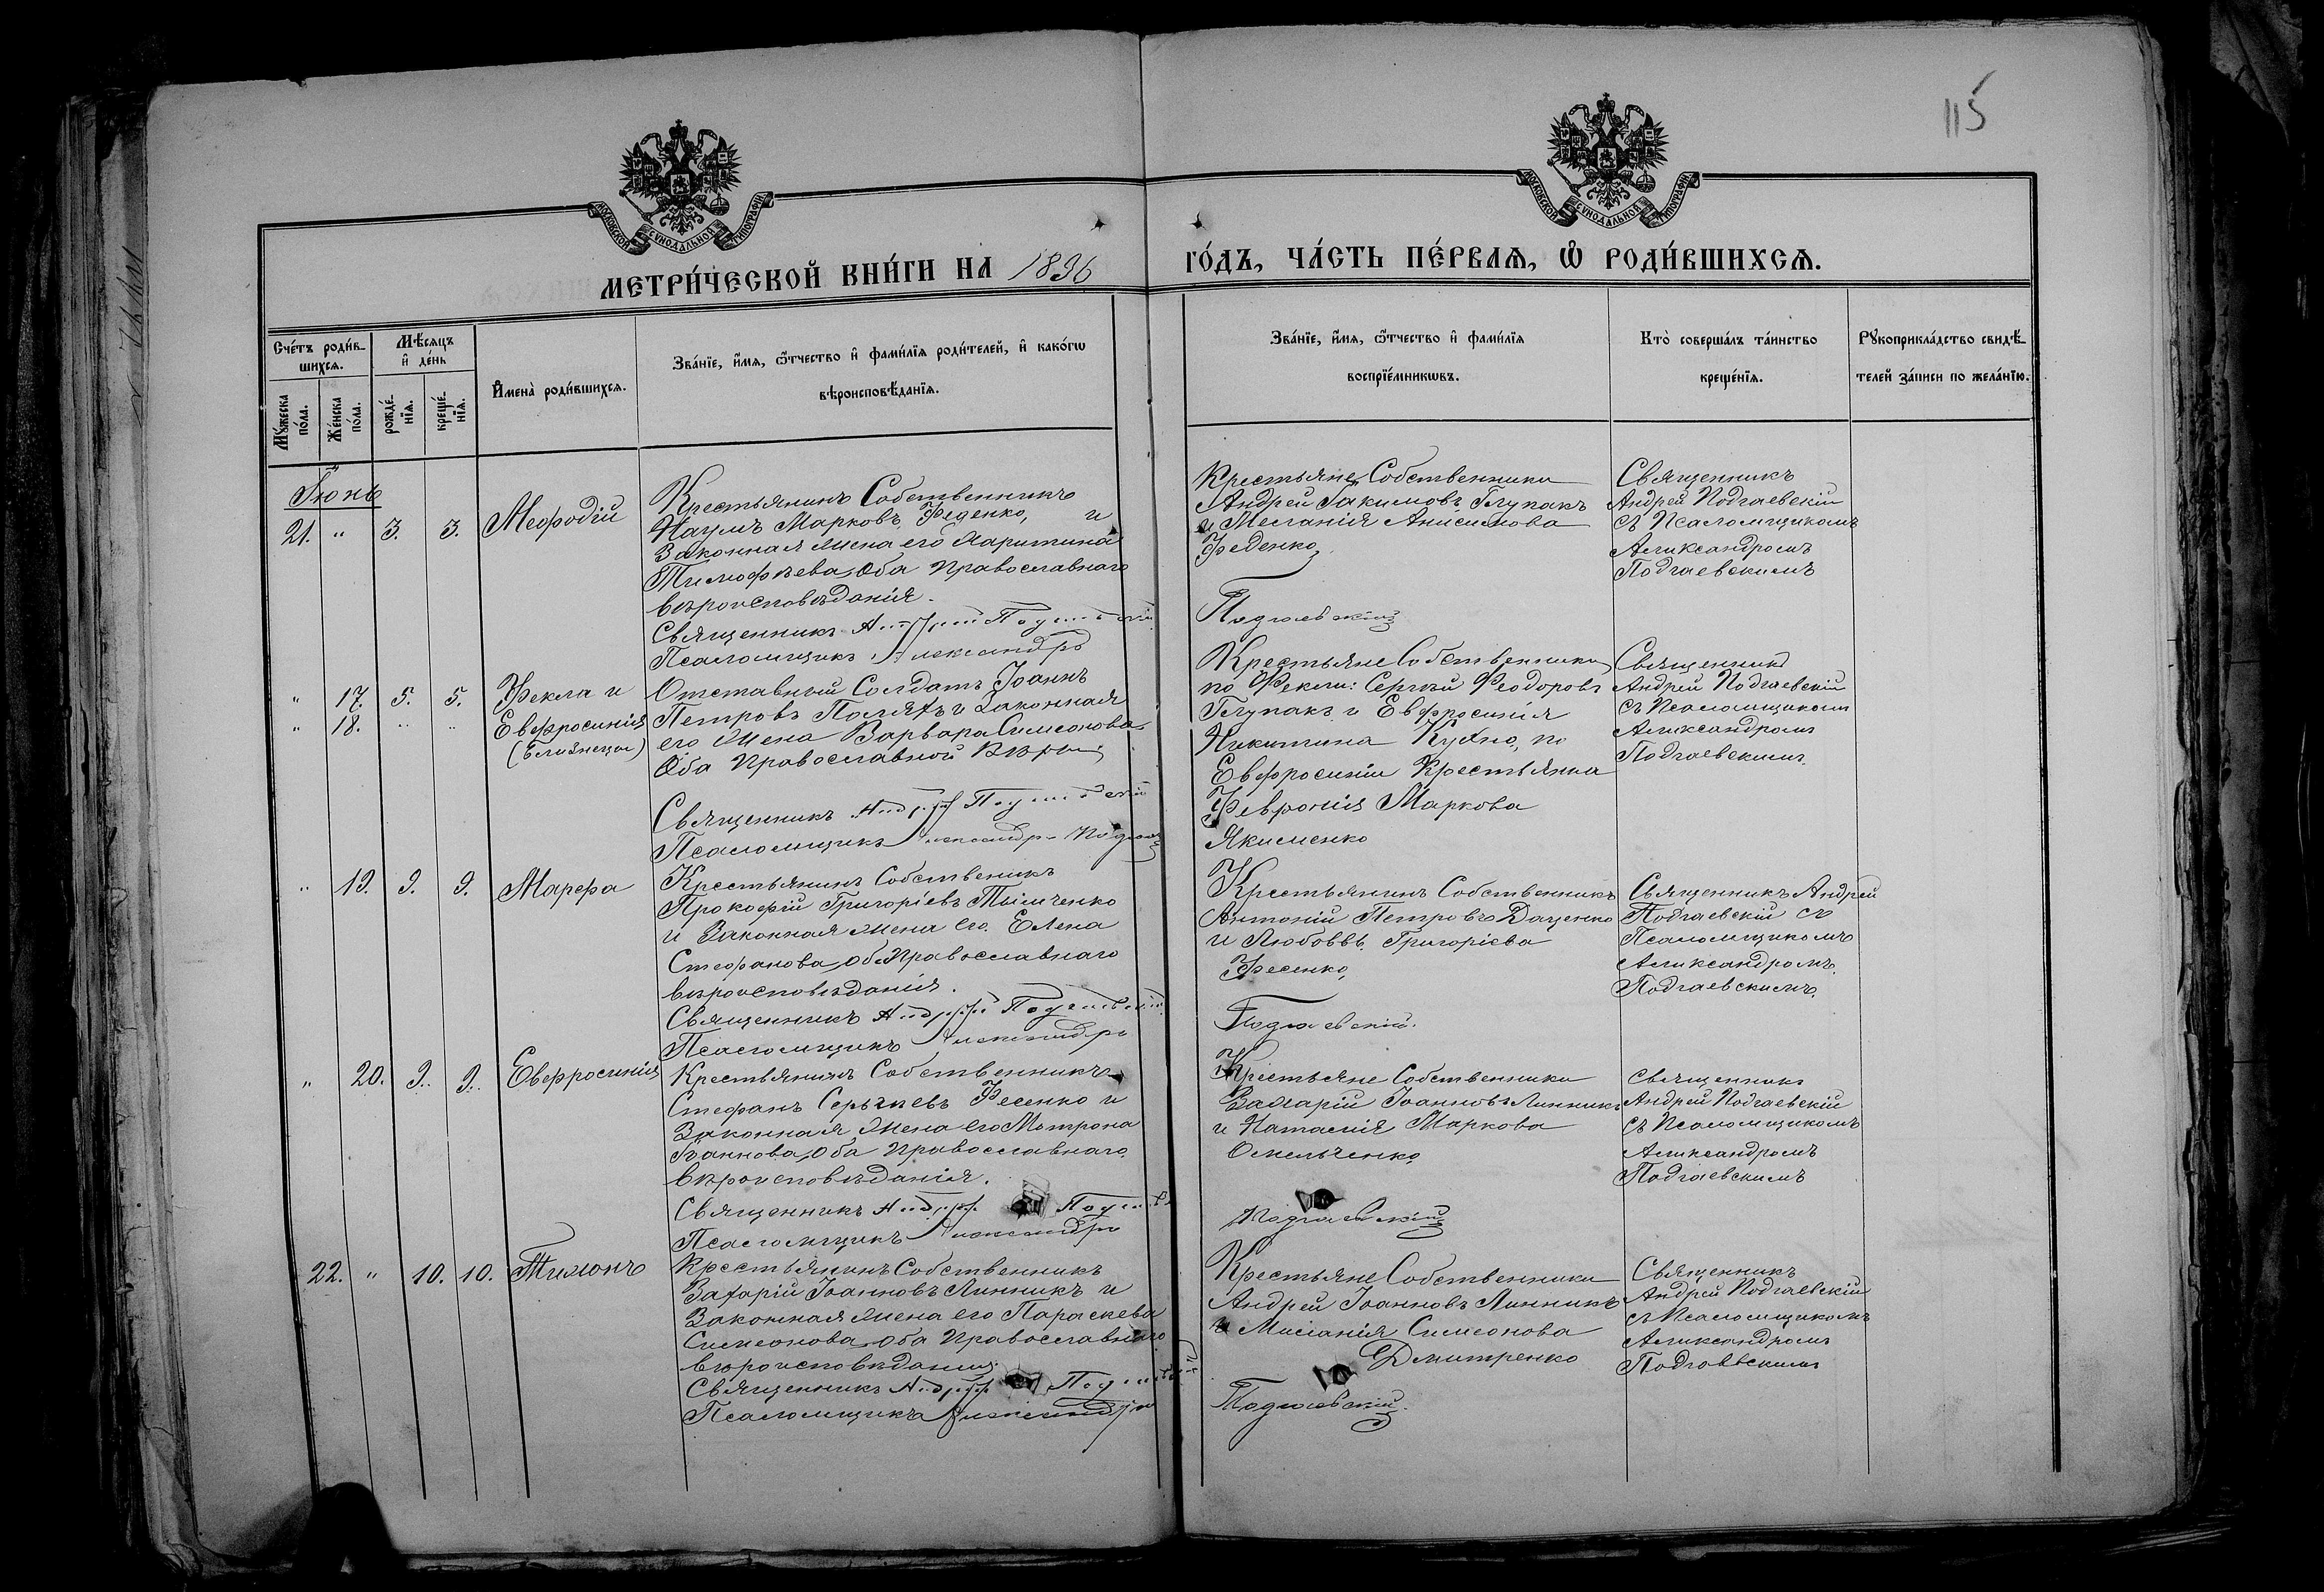 115
МОСКОВСКОЙ СѴНОДАЛЬНОЙ ТИПОГРАФІИ
МОСКОВСКОЙ СѴНОДАЛЬНОЙ ТИПОГРАФІИ
МЕТРИ́ЧЕСКОЙ КНИ́ГИ НА 1896
ГО́ДЪ, ЧА́СТЬ ПЕ́РВАЯ, Ѡ РОДИ́ВШИХСЯ.
Сче́тъ роди́в-
шихся.
Мꙋ́жеска
по́ла.
Же́нска
по́ла.
Мѣ́сяцъ
и҆ де́нь
рожде́-
нїя.
креще́-
нїя.
И҆мена̀ роди́вшихся.
Зва́нїе, и҆́мя, ѻ҆́тчество и҆ фами́лїя роди́телей, и҆ како́гѡ
вѣроисповѣ́данїя.
Зва́нїе, и҆́мя, ѻ҆́тчество и҆ фами́лїя
воспрїе́мникѡвъ.
Кто̀ соверша́лъ та́инство
креще́нїя.
Рꙋкоприкла́дство свидѣ́-
телей за́писи по жела́нїю.
Іюнь
21. " 3. 3. Меѳодій
Крестьянинъ Собственникъ
Наумъ Марковъ Феденко, и
Законная жена его Харитина
Тимофѣева, Оба Православнаго
вѣроисповѣданія.
Священникъ Андрей Подгаевскій
Псаломщикъ Александръ
Крестьяне Собственники
Андрей Іакимовъ Глупакъ
и Меланія Анисимова
Феденко
Подгаевскій
Священникъ
Андрей Подгаевскій
съ Псаломщикомъ
Александромъ
Подгаевскимъ
" 17. 5. 5. Фекла и
" 18. " " Евфросинія
(близнецы)
Отставный Солдатъ Іоаннъ
Петровъ и Законная
его Жена Варвара Симеонова
Оба Православной Вѣры
Священникъ Андрей Подгаевскій
Псаломщикъ Александръ
Крестьяне Собственники
по Фекли: Сергѣй Феодоровъ
Глупакъ и Евфросинія
Никитина Кухно, по
Евфросиніи Крестьянка
Феврония Маркова
Якименко
Священникъ
Андрей Подгаевскій
съ Псаломщикомъ
Александромъ
Подгаевскимъ.
" 19. 9. 9. Марфа
Крестьянинъ Собственикъ
Прокофій Григоріевъ Тымченко
и Законная жена его Елена
Стефанова, Оба Православнаго
вѣроисповѣданія.
Священникъ Андрей Подгаевскій
Псаломщикъ Александръ
Крестьянинъ Собственникъ
Антоній Петровъ Даценко
и Любовь Григоріева
Фесенко,
Подгаевскій.
Священникъ Андрей
Подгаевскій съ
Псаломщикомъ
Александромъ
Подгаевскимъ.
" 20. 9. 9. Евфросинія
Крестьянинъ Собственникъ
Стефанъ Сергѣевъ Фесенко и
Законная Жена его Матрона
Іоаннова, Оба Православнаго
вѣроисповѣданія.
Священникъ Андрей Подгаевскій
Псаломщикъ Александръ
Крестьяне Собственники
Захарій Іоанновъ Линникъ
и Наталія Маркова
Омельченко
Подгаевскій
Священникъ
Андрей Подгаевскій
съ Псаломщикомъ
Александромъ
Подгаевскимъ
22. " 10. 10. Тимонъ
Крестьянинъ Собственникъ
Захарій Іоанновъ Линникъ и
Законная жена его Параскева
Симеонова, оба Православнаго
вѣроисповѣданія.
Священникъ Андрей Подгаевскій
Псаломщикъ Александръ
Крестьяне Собственники
Андрей Іоанновъ Линникъ
и Миланія Симеонова
Дмитренко
Подгаевскій.
Священникъ
Андрей Подгаевскій
съ Псаломщикомъ
Александромъ
Подгаевскимъ